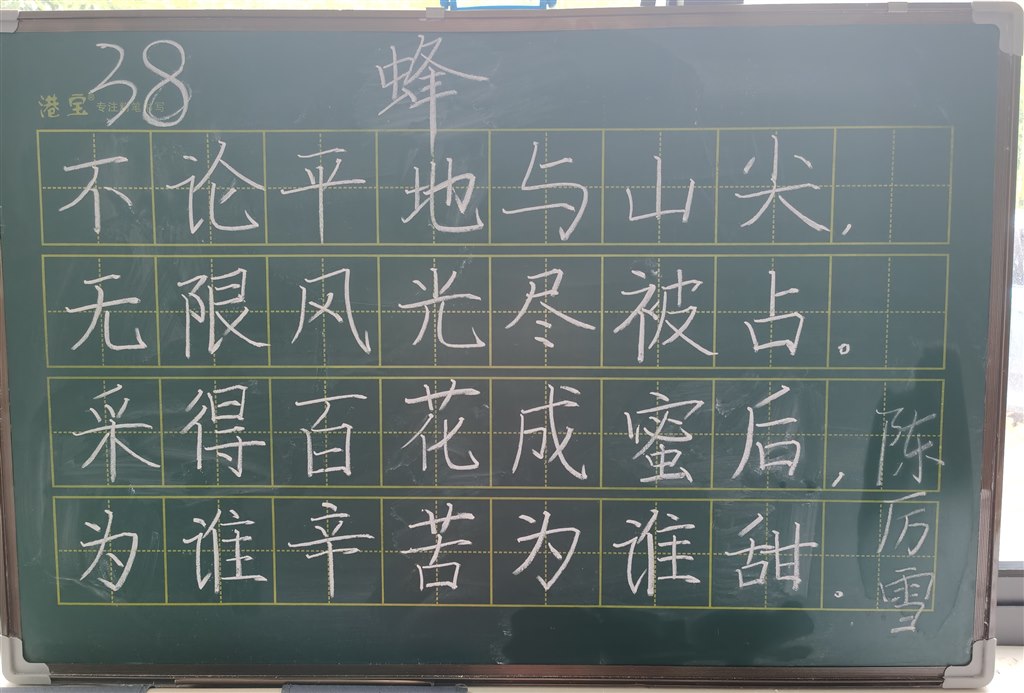 38 蜂
港宝® 专注粉笔书写
不论平地与山尖,
无限风光尽被占。
采得百花成蜜后,
为谁辛苦为谁甜.
陈厉雪